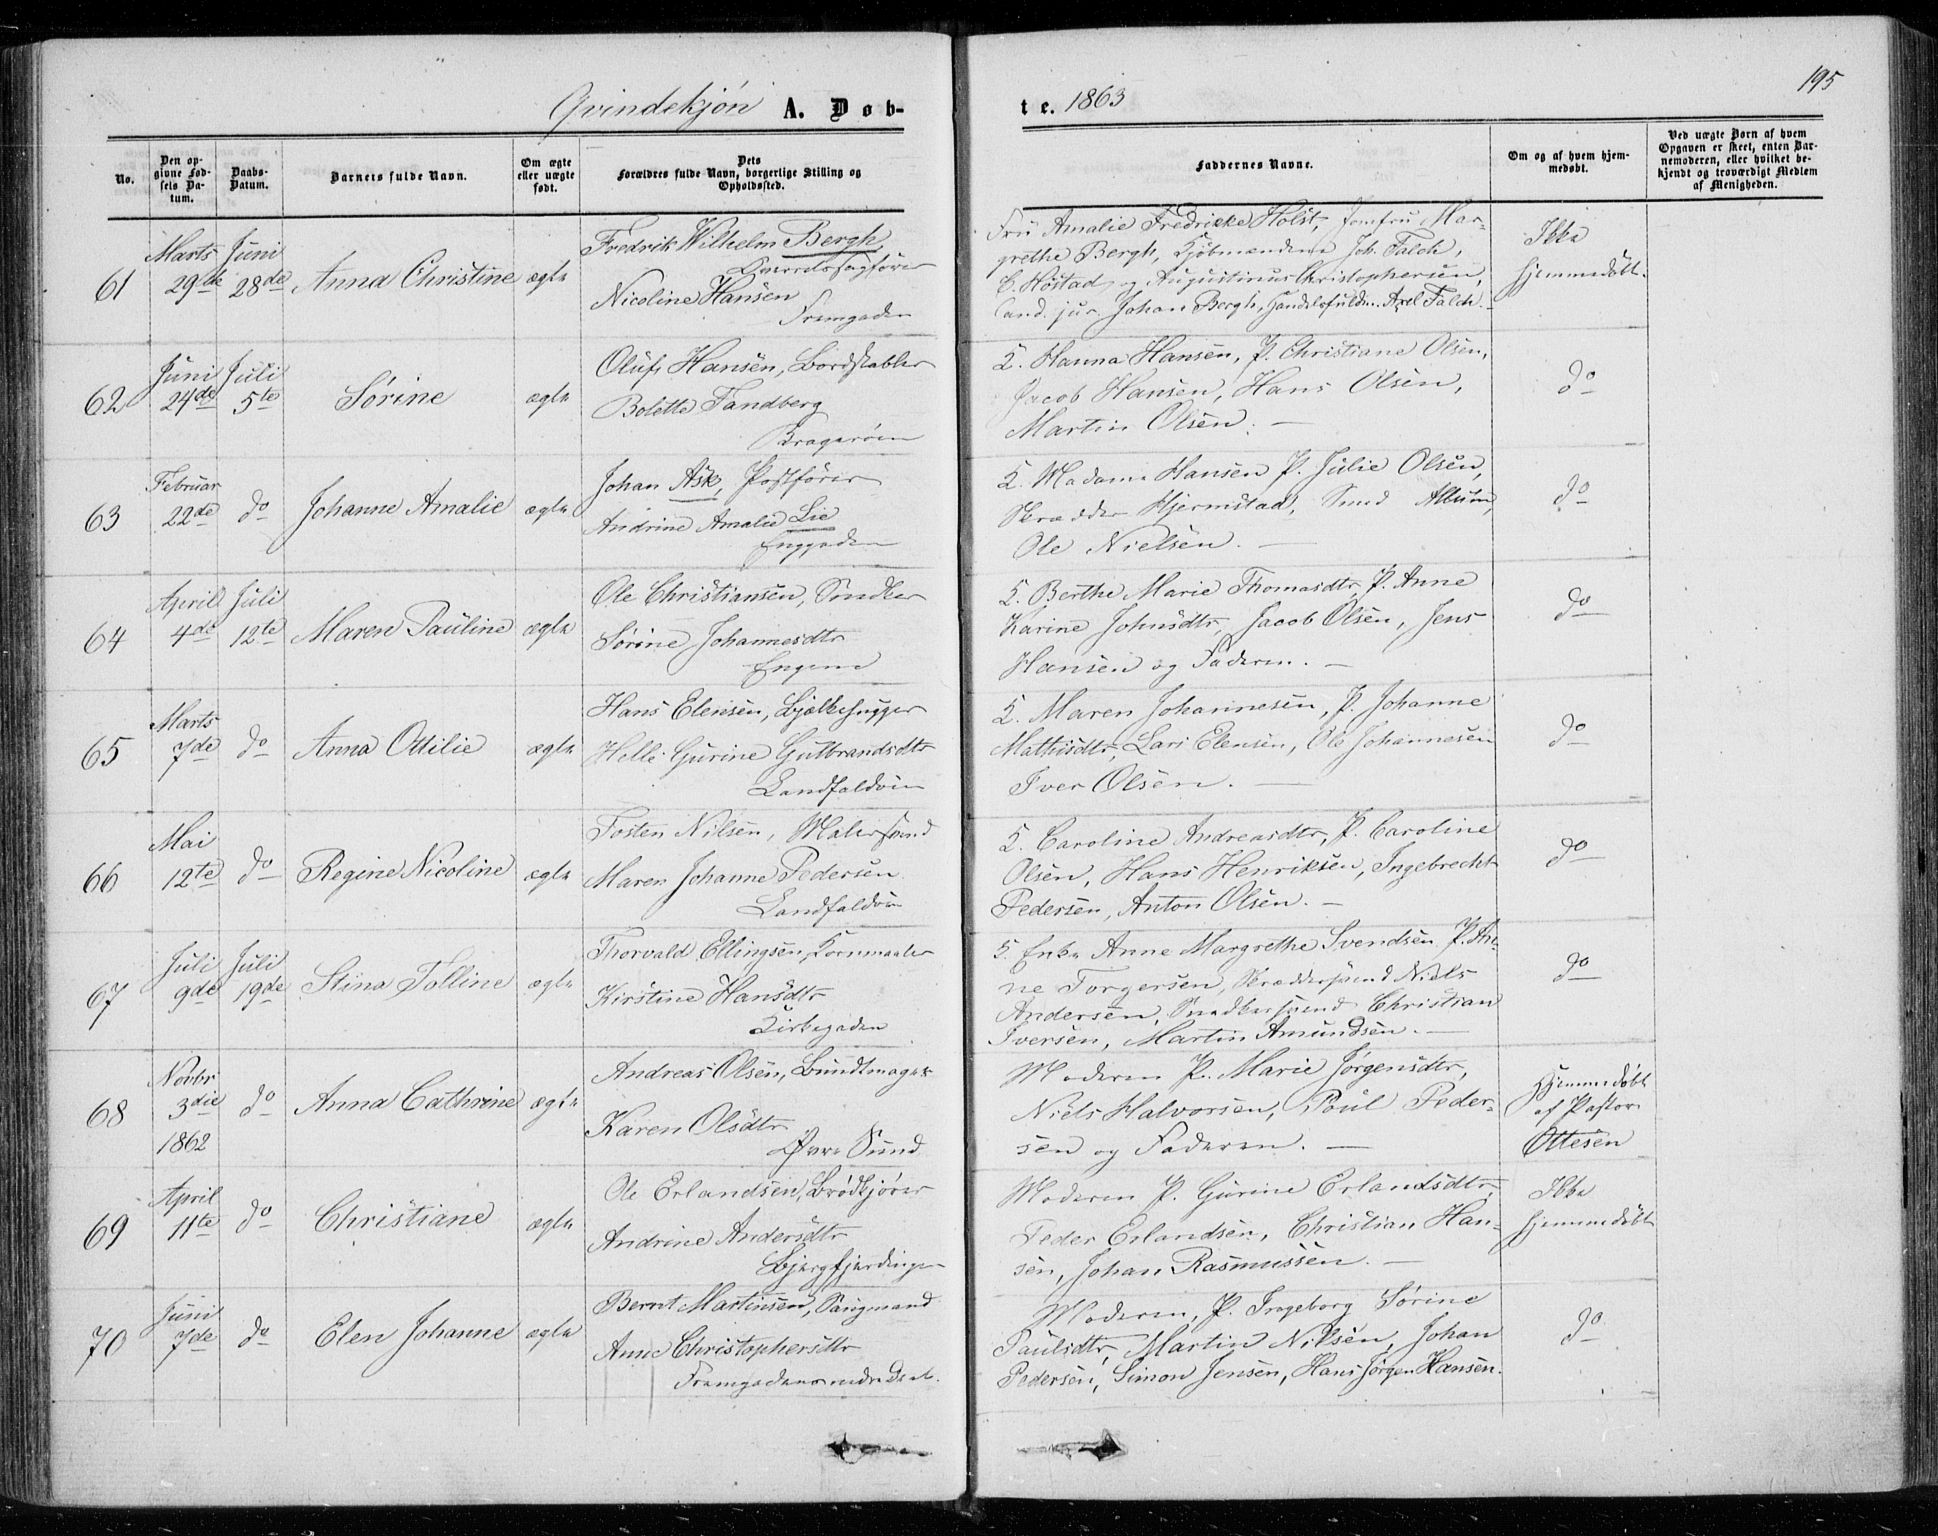 195
Qvindekjøn A. Døb-
te. 1863
No.
Den op-
givne Fød-
sels Da-
tum.
Daabs-
Datum.
Barnets fulde Navn.
Om ægte
eller uægte
født.
Dets
Forældres fulde Navn, borgerlige Stilling og
Opholdssted.
Faddernes Navne.
Om og af hvem hjem-
medøbt.
Ved uægte Børn af hvem
Opgaven er skeet, enten Bar-
nemoderen, eller hvilket be-
kjendt og troværdigt Medlem
af Menigheden.
61
Marts
29de
Juni
28de
Anna Christine
ægte
Fredrik Wilhelm Bergh,
Overretssagfører
Nicoline Hansen
Strømgaden
Fru Amalie Fredrikke Holst, Jomfru Mar-
grethe Bergh, Kjøbmændene Joh. Falch,
C. Høstad og Augustinus Christophersen,
Cand. jur. Johan Bergh, Handelsfuldm. Axel Falch.
Ikke
hjemmedøbt.
62
Juni
24de
Juli
5te
Sørine
ægte
Oluf Hansen, Bordstabler
Bolette Tandberg
Bragerøen
K. Hanna Hansen, P. Christiane Olsen,
Jacob Hansen, Hans Olsen,
Martin Olsen. —
do
63
Februar
22de
do
Johanne Amalie
ægte
Johan Ask, Postfører
Andrine Amalie Lie
Enggaden
K. Madame Hansen P. Julie Olsen,
Skrædder Hjermstad, Smed Allum,
Ole Nielsen. —
do
64
April
4de
Juli
12te
Maren Pauline
ægte
Ole Christiansen, Snedker
Sørine Johannesdtr
Engene
K. Berthe Marie Thomasdtr, P. Anne
Karine Johnsdtr, Jacob Olsen, Jens
Hansen og Faderen. —
do
65
Marts
7de
do
Anna Ottilie
ægte
Hans Elensen, Bjelkehugger
Helle Gurine Gulbrandsdtr
Landfaldøen
K. Maren Johannesen, P. Johanne
Mathisdtr, Lars Elensen, Ole Johannesen
Iver Olsen. —
do
66
Mai
12te
do
Regine Nicoline
ægte
Tosten Nilsen, Malersvend
Maren Johanne Pedersen
Landfaldøen
K. Caroline Andreasdtr, P. Caroline
Olsen, Hans Henriksen, Ingebrecht
Pedersen, Anton Olsen. —
do
67
Juli
9de
Juli
19de
Stina Tolline
ægte
Thorvald Ellingsen, Kornmaaler
Kirstine Hansdtr
Kirkegaden
K. Enke Anne Margrethe Svendsen P. An-
ne Torgersen, Skræddersvend Niels
Andersen, Snedkersvend Christian
Iversen, Martin Amundsen. —
do
68
Novbr
3die
1862
do
Anna Cathrine
ægte
Andreas Olsen, Bundtmager
Karen Olsdtr
Øvre Sund
Moderen P. Marie Jørgensdtr,
Niels Halvorsen, Poul Peder-
sen og Faderen. —
Hjemmedøbt
af Pastor
Ottesen
69
April
11te
do
Christiane
ægte
Ole Erlandsen, Brødkjører
Andrine Andersdtr
Bjergfjerdingen
Moderen P. Gurine Erlandsdtr,
Peder Erlandsen, Christian Han-
sen, Johan Rasmussen. —
Ikke
hjemmedøbt
70
Juni
7de
do
Elen Johanne
ægte
Bernt Martinsen, Saugmand
Anne Christophersdtr
Strømgadens nedre Deel.
Moderen, P. Ingeborg Sørine
Paulsdtr, Martin Nilsen, Johan
Pedersen, Simon Jensen, Hans Jørgen Hansen.
do